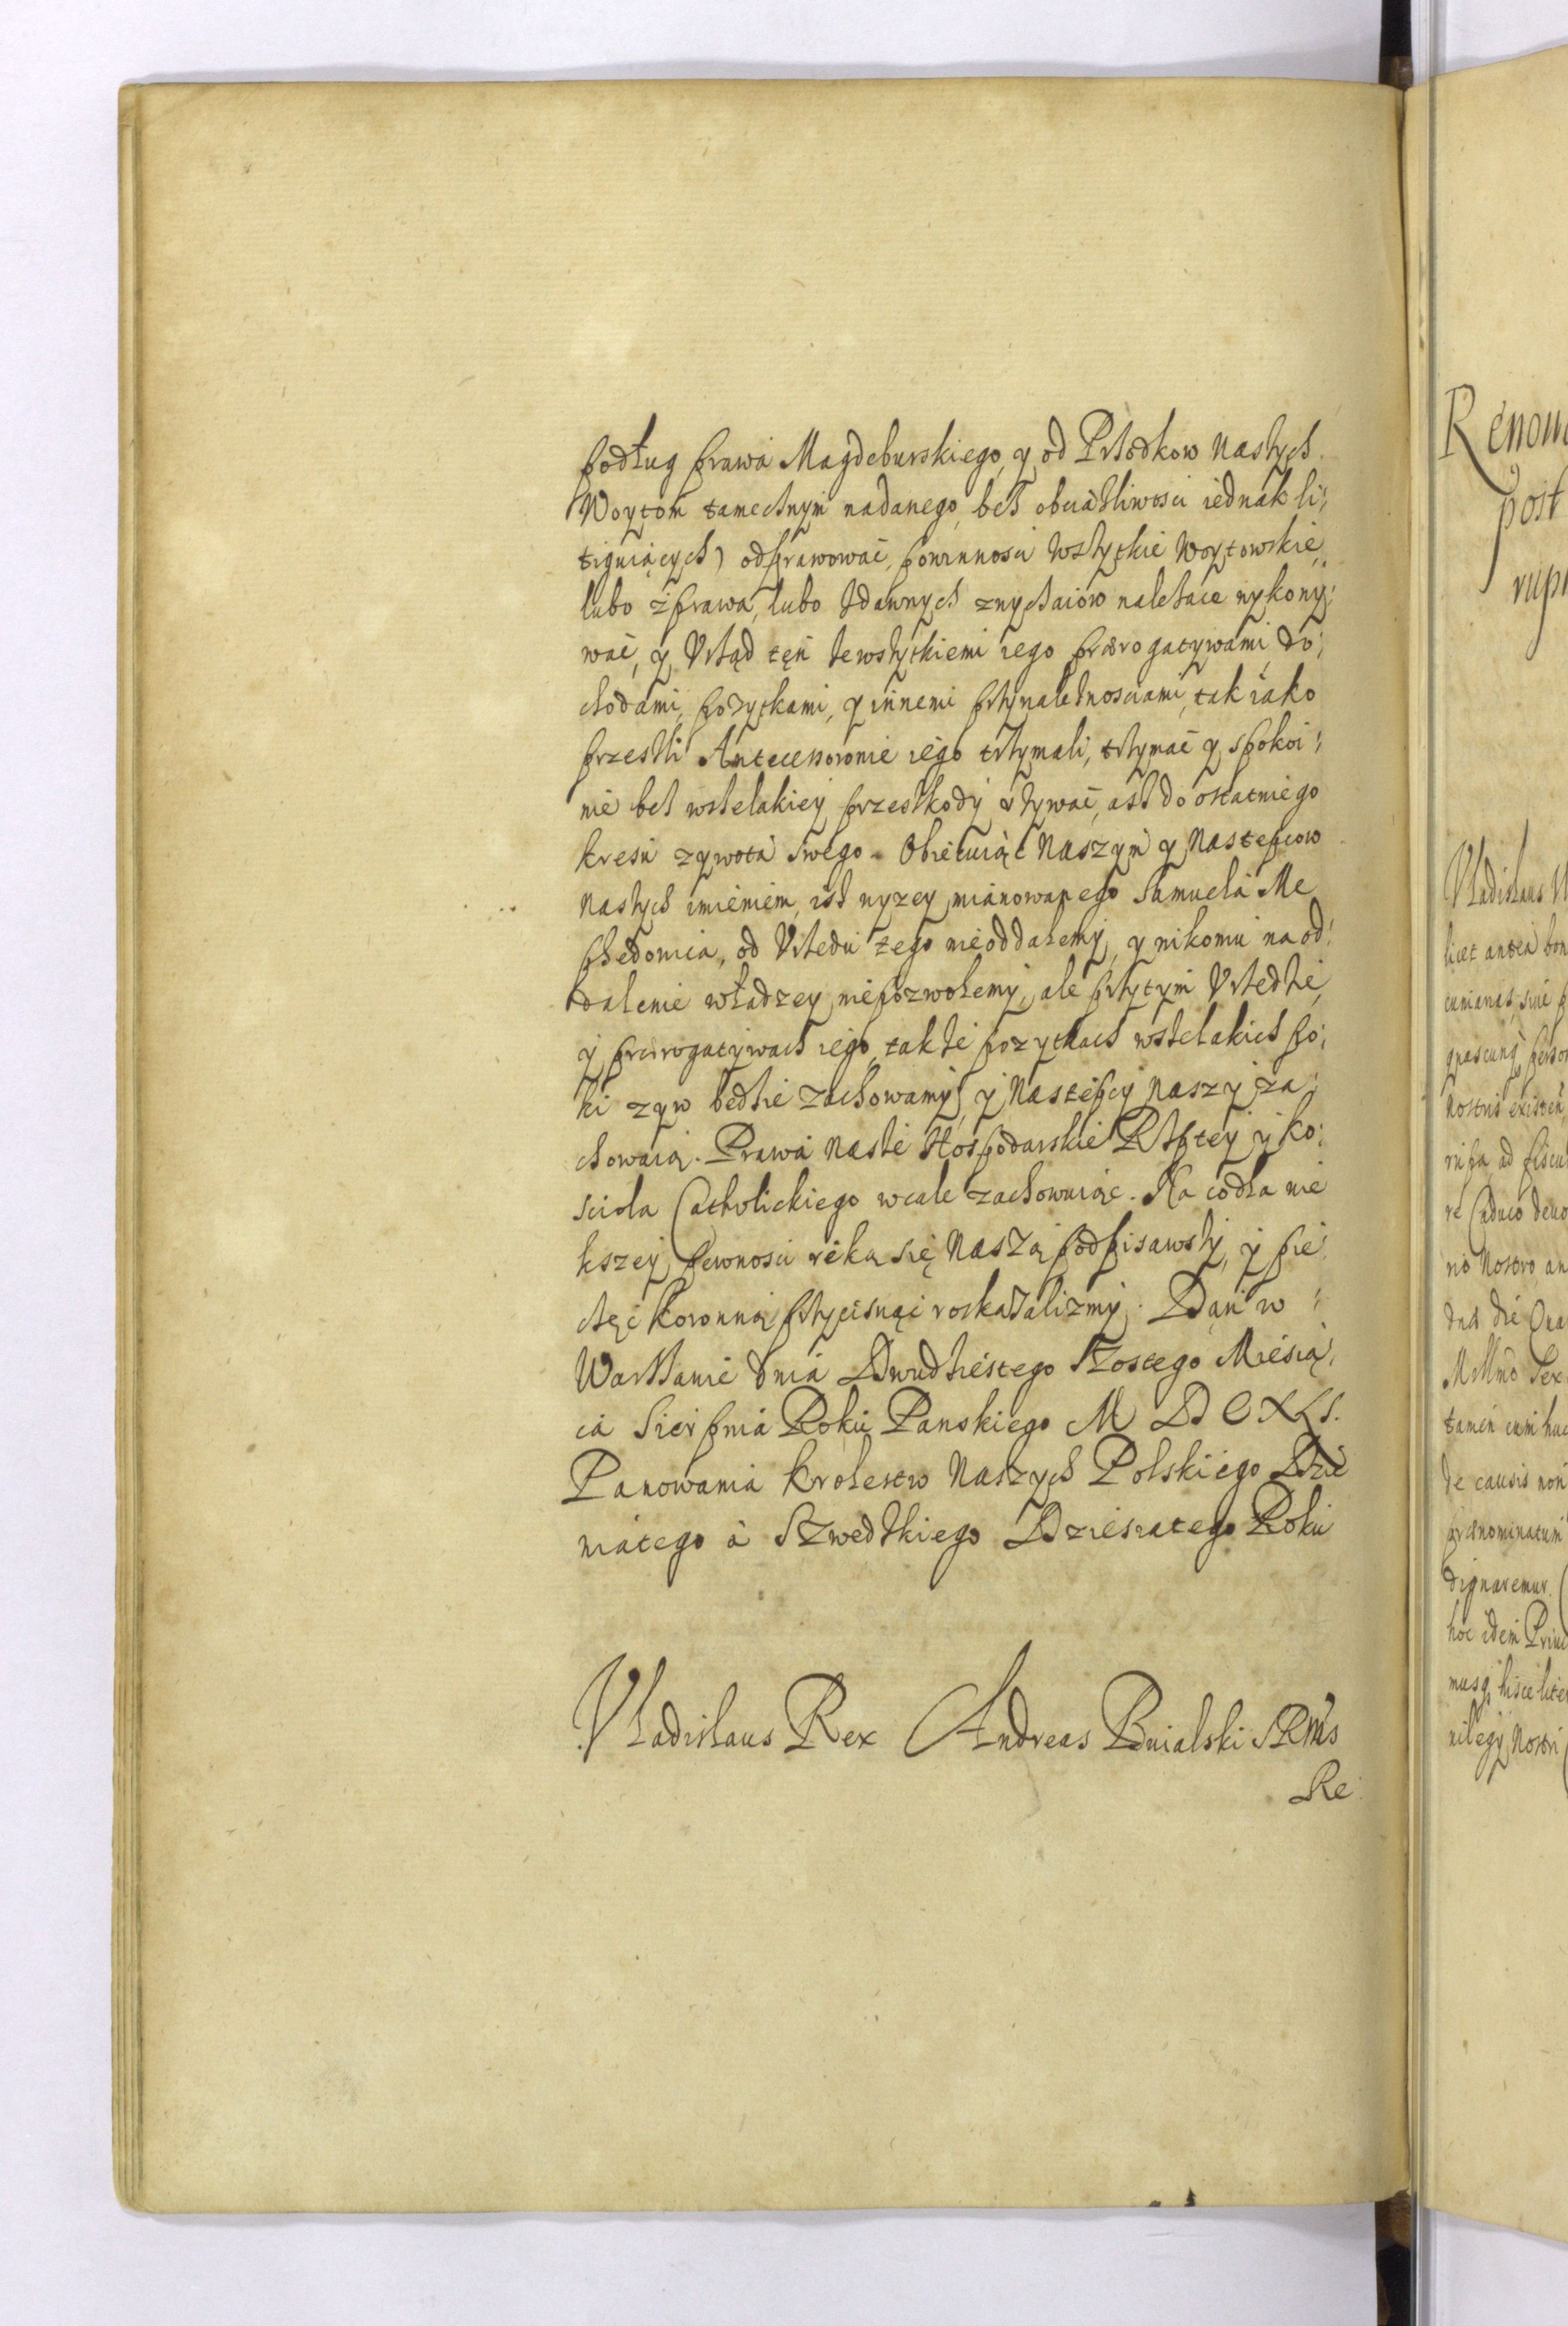 podług prawa Magdeburskiego, y od Przodkow naszych
Woytom tamecznym nadanego, bez obciążliwosci iednak li:
tiguiących) odprawować, powinnosci wszytkie Woytowskie,
lubo z prawa, lubo z dawnych zwyczaiow należące wykony:
wać, y Urząd ten ze wszytkiemi iego prærogatywami, do:
chodami, pozytkami, y innemi przynależnosciami, tak iako
przeszli Antecessorowie iego trzymali, trzymać y spokoi:
nie bez wszelakiey przeszkody vżywać, asz do ostatniego
kresu zywota swego. Obiecuiąc Naszym y Nastepcow
naszych imieniem, isz wyzey mianowanego Samuela Me
phedowica, od Urzedu tego nieoddalemy, y nikomu na od:
dalenie władzey niepozwolemy, ale przy tym Urzedzie,
y prerogatywach iego, takze pozytkach wszelakich po:
ki zyw bedzie zachowamy, y Nastepcy naszy za:
chowaią. Prawa nasze Hospodarskie Rzptey y ko:
sciola Catholickiego wcale zachowuiąc. Na co dla wie
kszey pewnosci reką się Naszą podpisawszy, y pie:
częć koronną przycisnąć roskazalizmy. Dan w:
Warszawie dnia Dwudziestego Szostego Miesią:
ca Sierpnia Roku Panskiego M D C XLI.
Panowania krolestw Naszych Polskiego Dzie
wiątego a Szwedzkiego Dziesiatego Roku
Vladislaus Rex Andreas Bnialski SRMs
Re:
Renow
post
Vladislaus
licet antea bon
nostris existen
rupa ad fiscu
re Caduco deuo
rio Nostro an
dus die Qua
Mllmo Sex
tamen cum huc
de causis non
prænominatum
dignaremur.
hoc idem Priui
musq hisce liter
uilegy Nostri